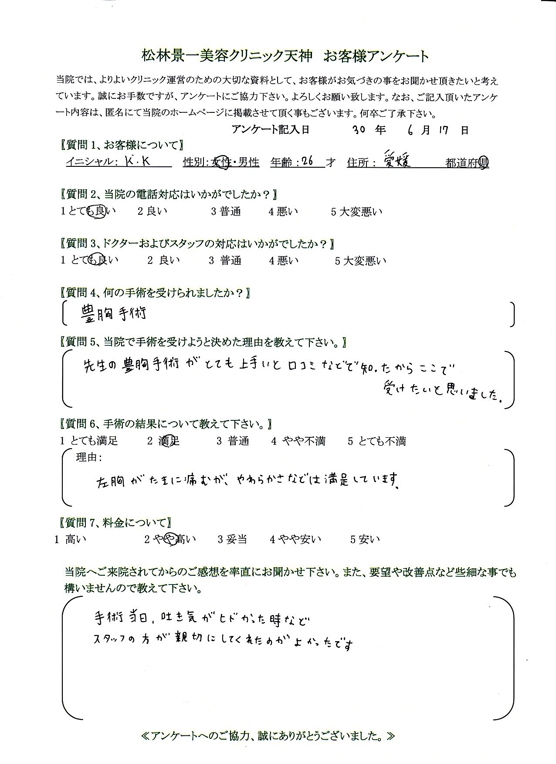 松林景一美容クリニック天神　お客様アンケート
当院では、よりよいクリニック運営のための大切な資料として、お客様がお気づきの事をお聞かせ頂きたいと考え
ています。誠にお手数ですが、アンケートにご協力下さい。よろしくお願い致します。なお、ご記入頂いたアンケ
ート内容は、匿名にて当院のホームページに掲載させて頂く事もございます。何卒ご了承下さい。
アンケート記入日　30 年　6 月 17 日
〖質問 1、お客様について〗
イニシャル： K.K　性別：女性・男性　年齢：26 才　住所：愛媛　都道府県
〖質問 2、当院の電話対応はいかがでしたか？〗
1 とても良い　2 良い　3 普通　4 悪い　5 大変悪い
〖質問 3、ドクターおよびスタッフの対応はいかがでしたか？〗
1 とても良い　2 良い　3 普通　4 悪い　5 大変悪い
〖質問 4、何の手術を受けられましたか？〗
豊胸手術
〖質問 5、当院で手術を受けようと決めた理由を教えて下さい。〗
先生の豊胸手術がとても上手いと口コミなどで知ったからここで
受けたいと思いました。
〖質問 6、手術の結果について教えて下さい。〗
1 とても満足　2 満足　3 普通　4 やや不満　5 とても不満
理由：
左胸がたまに痛むが、やわらかさなどは満足しています。
〖質問 7、料金について〗
1 高い　2 やや高い　3 妥当　4 やや安い　5 安い
当院へご来院されてからのご感想を率直にお聞かせ下さい。また、要望や改善点など些細な事でも
構いませんので教えて下さい。
手術当日、吐き気がヒドかった時など
スタッフの方が親切にしてくれたのがよかったです
≪アンケートへのご協力、誠にありがとうございました。≫